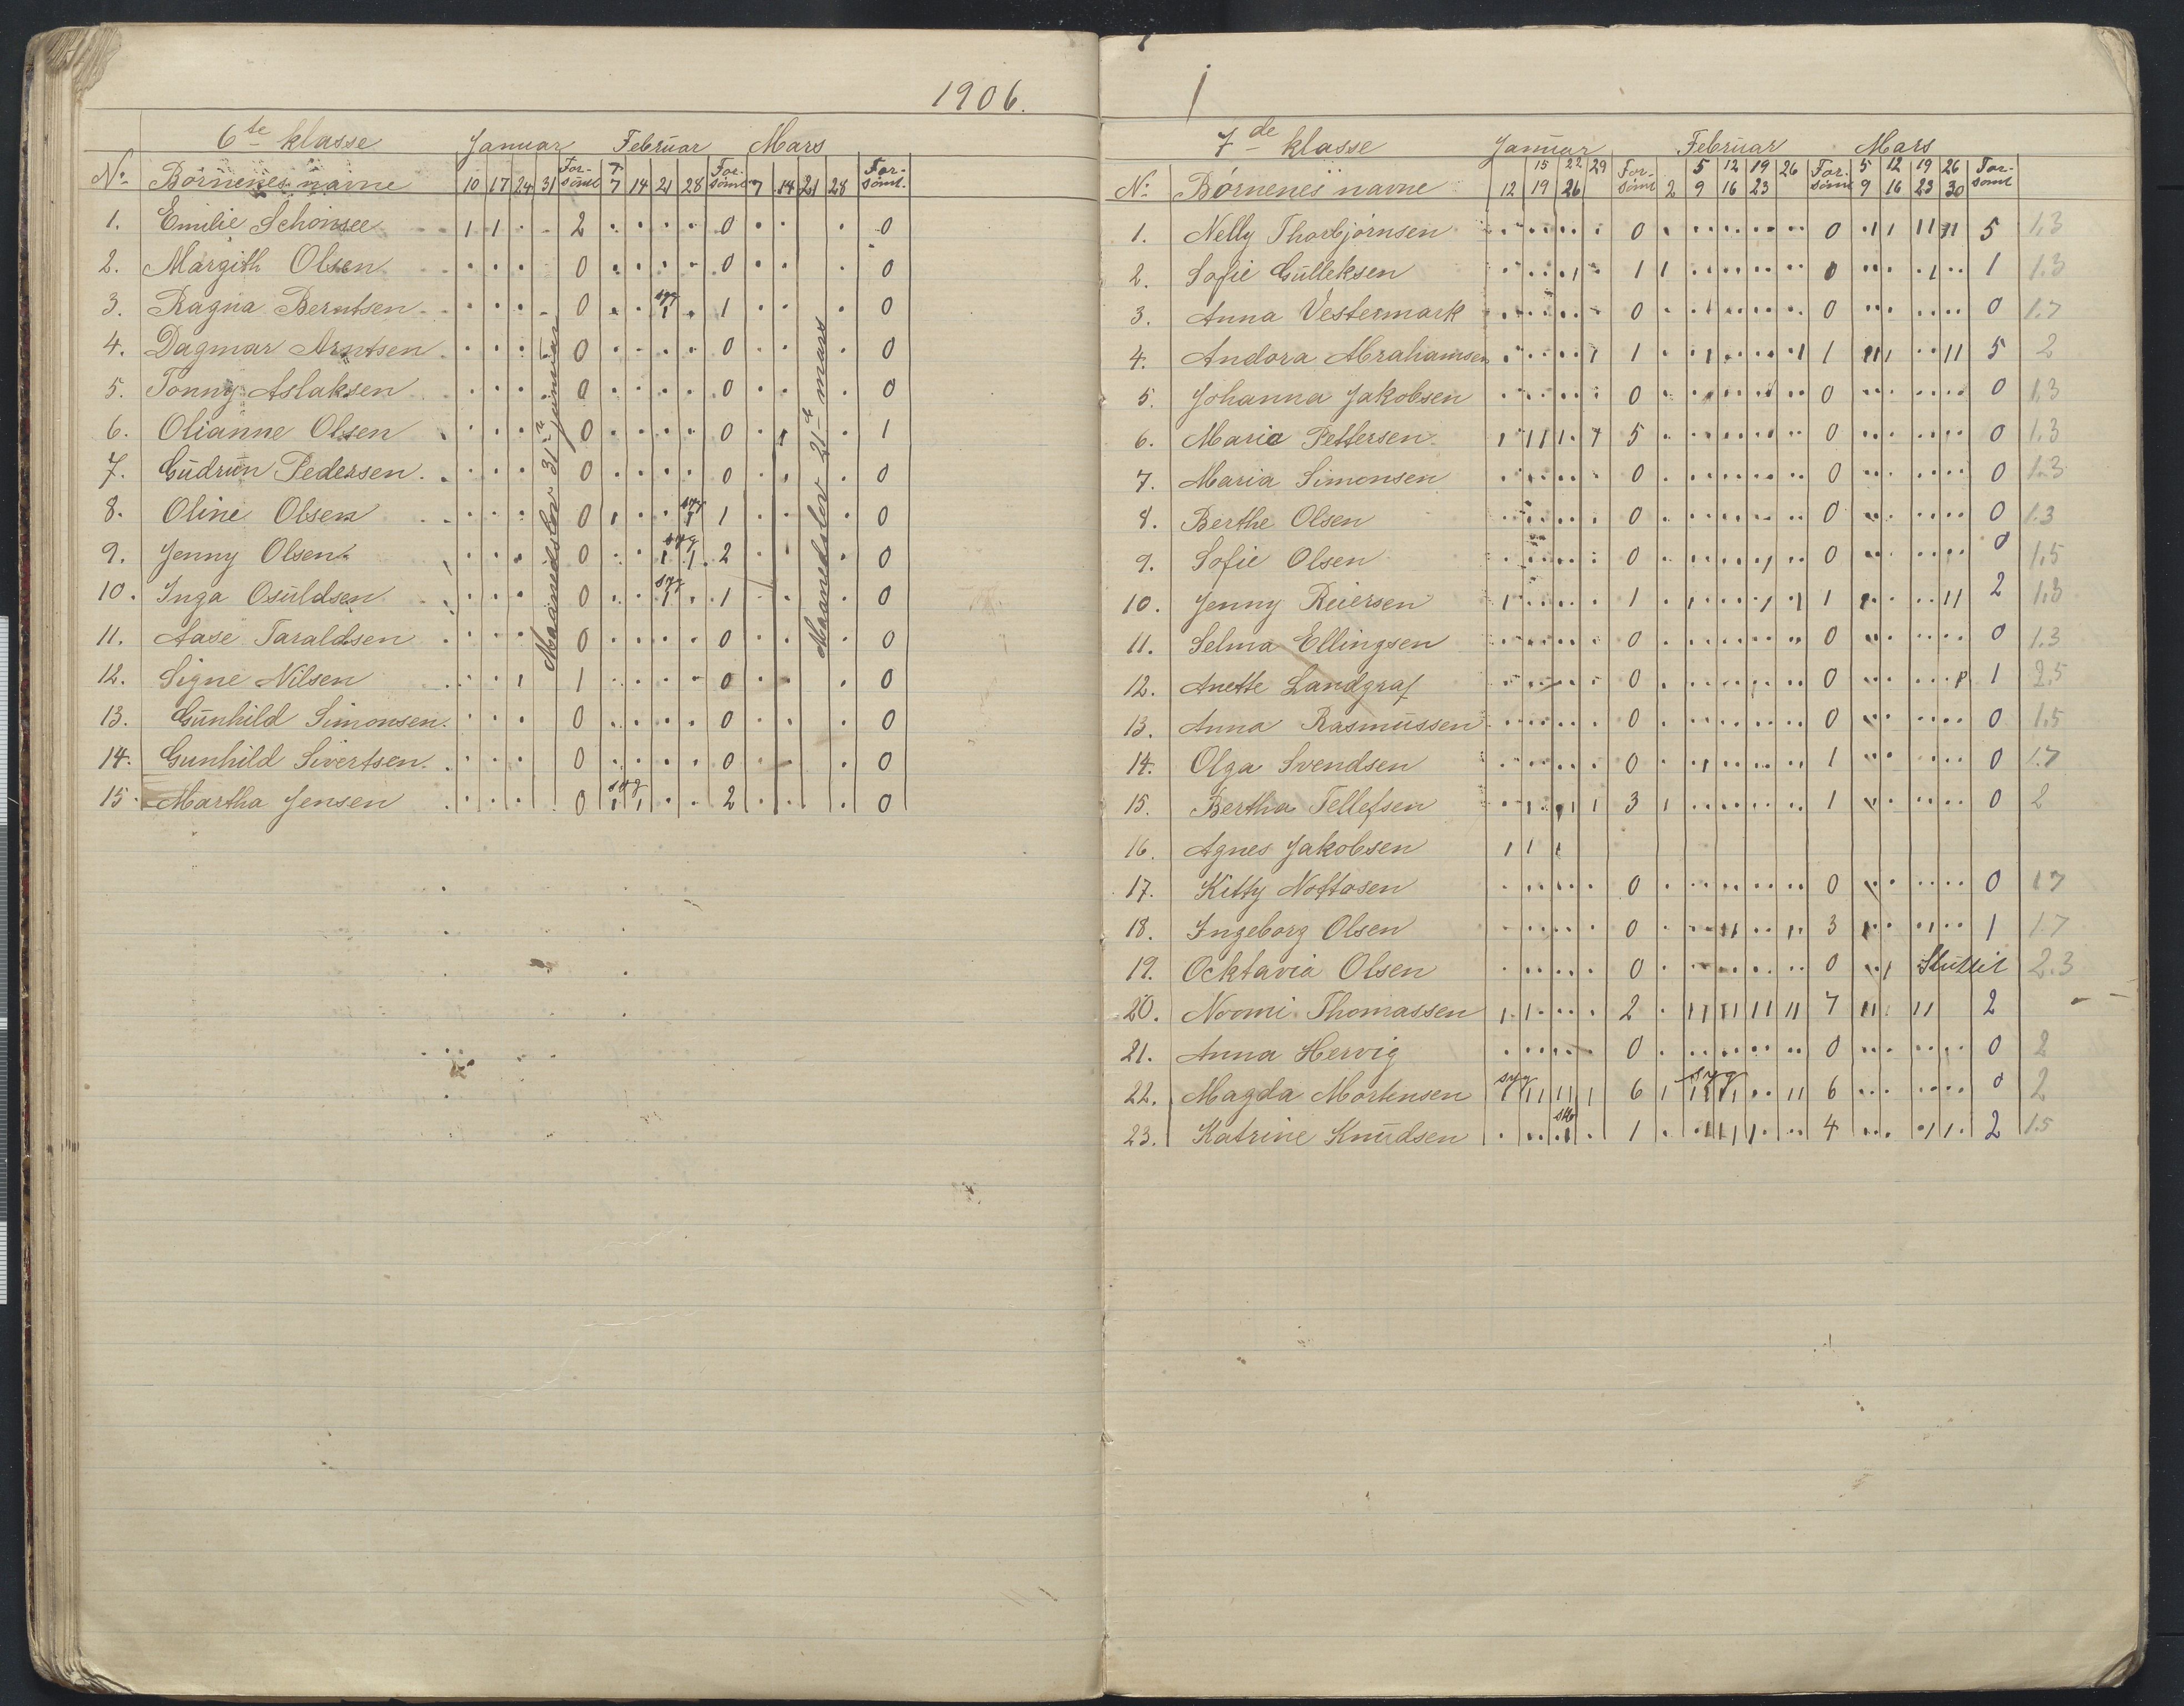 1906.
6te klasse Januar Februar Mars
No. Børnenes navne 10 17 24 31 For-sömt 7 14 21 28 For-sömt 7 14 21 28 For-sömt.
1. Emilie Schönsee 1 1 . . 2 . . . . 0 . . . 0
2. Margith Olsen . . . 0 . . . . 0 . . . 0
3. Ragna Berntsen . . . 0 . . syg 1 . 1 . . . 0
4. Dagmar Arntsen . . . 0 . . . . 0 . . . 0
5. Tonny Aslaksen . . . 0 . . . . 0 . . . 0
6. Olianne Olsen . . . 0 . . . . 0 . 1 . 1
7. Gudrun Pedersen . . . 0 . . . . 0 . . . 0
8. Oline Olsen . . . 0 . . . syg 1 1 . . . 0
9. Jenny Olsen . . . 0 . . syg 1 1 2 . . . 0
10. Inga Osuldsen . . . 0 . . syg 1 . 1 . . . 0
11. Aase Taraldsen . . . 0 . . . . 0 . . . 0
12. Signe Nilsen . . 1 1 . . . . 0 . . . 0
13. Gunhild Simonsen . . . 0 . . . . 0 . . . 0
14. Gunhild Sivertsen . . . 0 . . . . 0 . . . 0
15. Martha Jensen . . . 0 syg 1 1 . . 2 . . . 0
Maanedslov 31te januar
Maanedslov 21de mars
7de klasse Januar Februar Mars
15 22 29 5 12 19 26 5 12 19 26
No. Børnenes navne 12 19 26 For-sömt 2 9 16 23 For-sömt 9 16 23 30 For-sömt
1. Nelly Thorbjörnsen 0 0 5 1.3
2. Sofie Gulleksen 1 0 1 1.3
3. Anna Vestermark 0 0 0 1.7
4. Andora Abrahamsen 1 1 5 2
5. Johanna Jakobsen 0 0 0 1.3
6. Maria Pettersen 5 0 0 1.3
7. Maria Simonsen 0 0 0 1.3
8. Berthe Olsen 0 0 0 1.3
9. Sofie Olsen 0 0 0 1.5
10. Jenny Reiersen 1 1 2 1.3
11. Selma Ellingsen 0 0 0 1.3
12. Anette Landgraf 0 0 1 2.5
13. Anna Rasmussen 0 0 0 1.5
14. Olga Svendsen 0 1 0 1.7
15. Bertha Tellefsen 3 1 0 2
16. Agnes Jakobsen 1 1 1
17. Kitty Nottosen 0 0 0 1.7
18. Ingeborg Olsen 0 3 1 1.7
19. Ocktavia Olsen 0 0 Sluttet 2.3
20. Noomi Thomassen 2 7 2
21. Anna Hervig 0 0 0 2
22. Magda Mortensen syg 6 syg 6 0 2
23. Katrine Knudsen 1 4 2 1.5